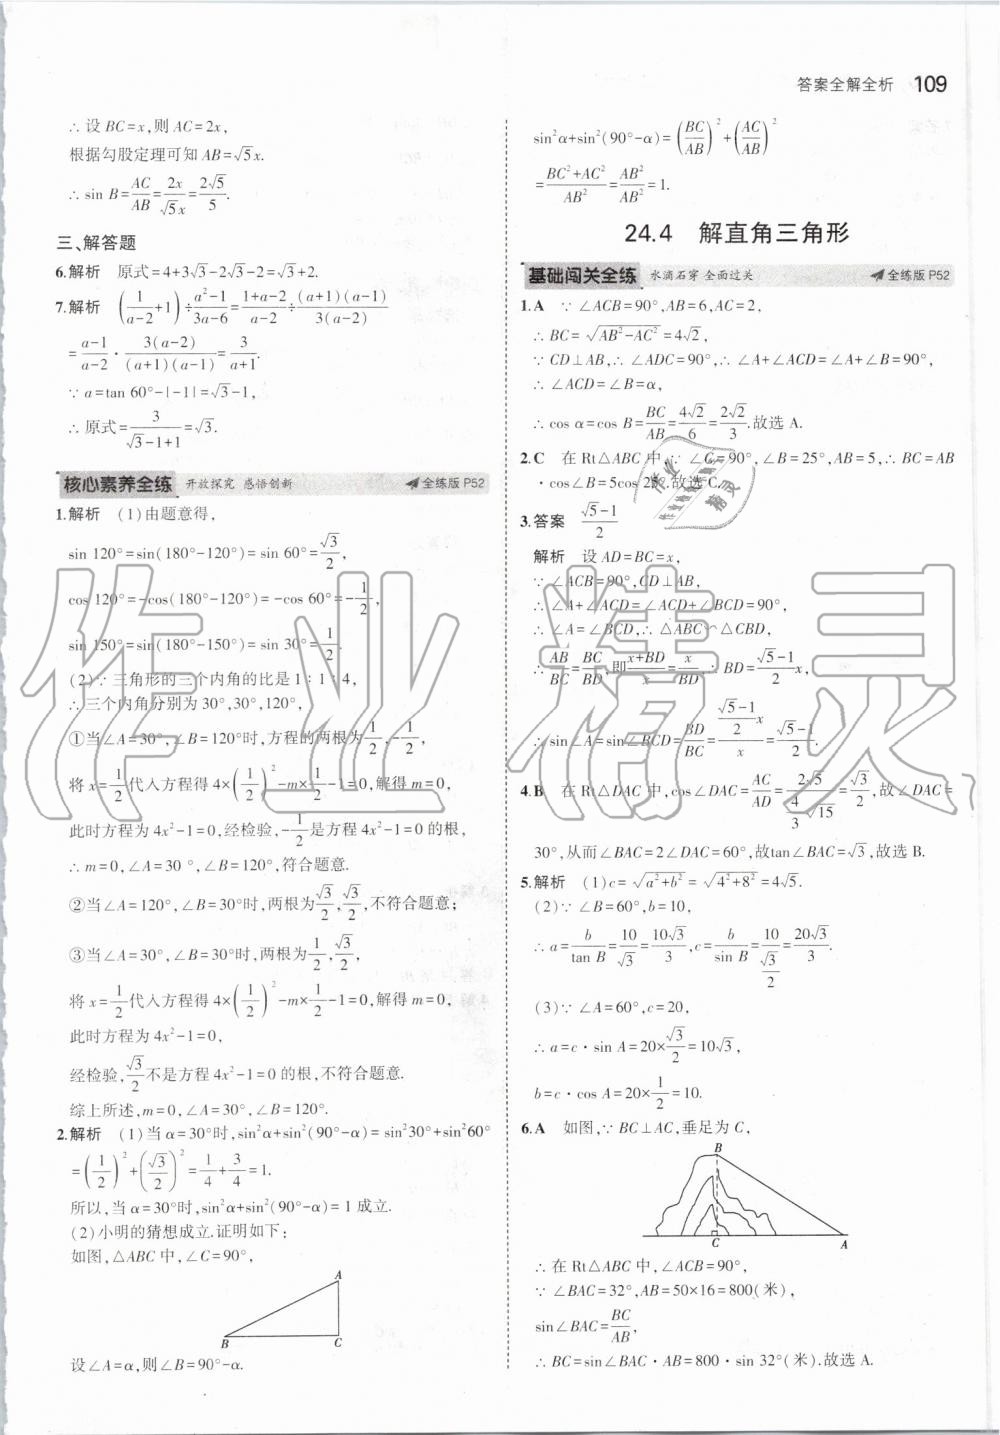 答案全解全析 109
∴设 BC=x,则 AC=2x,
根据勾股定理可知 AB=√5x.
∴sin B=AC/AB=2x/√5x=2√5/5.
三、解答题
6.解析 原式=4+3√3-2√3-2=√3+2.
7.解析 (1/(a-2)+1)÷(a²-1)/(3a-6)=(1+a-2)/(a-2)÷(a+1)(a-1)/3(a-2)
=(a-1)/(a-2)·3(a-2)/(a+1)(a-1)=3/(a+1).
∵a=tan 60°-|-1|=√3-1,
∴原式=3/(√3-1+1)=√3.
核心素养全练 开放探究 感悟创新 全练版 P52
1.解析 (1)由题意得,
sin 120°=sin(180°-120°)=sin 60°=√3/2,
cos 120°=-cos(180°-120°)=-cos 60°=-1/2,
sin 150°=sin(180°-150°)=sin 30°=1/2.
(2)∵三角形的三个内角的比是 1∶1∶4,
∴三个内角分别为 30°,30°,120°,
①当∠A=30°,∠B=120°时,方程的两根为1/2,-1/2,
将 x=1/2代入方程得 4×(1/2)²-m×1/2-1=0,解得 m=0,
此时方程为 4x²-1=0,经检验,-1/2是方程 4x²-1=0 的根,
∴m=0,∠A=30°,∠B=120°,符合题意.
②当∠A=120°,∠B=30°时,两根为√3/2,√3/2,不符合题意;
③当∠A=30°,∠B=30°时,两根为1/2,√3/2,
将 x=1/2代入方程得 4×(1/2)²-m×1/2-1=0,解得 m=0,
此时方程为 4x²-1=0,
经检验,√3/2不是方程 4x²-1=0 的根,不符合题意.
综上所述,m=0,∠A=30°,∠B=120°.
2.解析 (1)当 α=30°时,sin²α+sin²(90°-α)=sin²30°+sin²60°
=(1/2)²+(√3/2)²=1/4+3/4=1.
所以,当 α=30°时,sin²α+sin²(90°-α)=1 成立.
(2)小明的猜想成立.证明如下:
如图,△ABC 中,∠C=90°,
A
B C
设∠A=α,则∠B=90°-α.
sin²α+sin²(90°-α)=(BC/AB)²+(AC/AB)²
=(BC²+AC²)/AB²=AB²/AB²=1.
24.4 解直角三角形
基础闯关全练 水滴石穿 全面过关 全练版 P52
1.A ∵∠ACB=90°,AB=6,AC=2,
∴BC=√(AB²-AC²)=4√2,
∵CD⊥AB,∴∠ADC=90°,∴∠A+∠ACD=∠A+∠B=90°,
∴∠ACD=∠B=α,
∴cos α=cos B=BC/AB=4√2/6=2√2/3.故选 A.
2.C 在 Rt△ABC 中,∵∠C=90°,∠B=25°,AB=5,∴BC=AB
·cos∠B=5cos 25°.故选 C.
3.答案 (√5-1)/2
解析 设 AD=BC=x,
∵∠ACB=90°,CD⊥AB,
∴∠A+∠ACD=∠ACD+∠BCD=90°,
∴∠A=∠BCD,∴△ABC∽△CBD,
∴AB/BC=BC/BD,即(x+BD)/x=x/BD,∴BD=(√5-1)/2x,
∴sin∠A=sin∠BCD=BD/BC=((√5-1)/2x)/x=(√5-1)/2.
4.B 在 Rt△DAC 中,cos∠DAC=AC/AD=2√5/(4/3√15)=√3/2,故∠DAC=
30°,从而∠BAC=2∠DAC=60°,故tan∠BAC=√3,故选 B.
5.解析 (1)c=√(a²+b²)=√(4²+8²)=4√5.
(2)∵∠B=60°,b=10,
∴a=b/tan B=10/√3=10√3/3,c=b/sin B=10/(√3/2)=20√3/3.
(3)∵∠A=60°,c=20,
∴a=c·sin A=20×√3/2=10√3,
b=c·cos A=20×1/2=10.
6.A 如图,∵BC⊥AC,垂足为 C,
B
C A
∴在 Rt△ABC 中,∠ACB=90°,
∵∠BAC=32°,AB=50×16=800(米),
sin∠BAC=BC/AB,
∴BC=sin∠BAC·AB=800·sin 32°(米).故选 A.
作业精灵